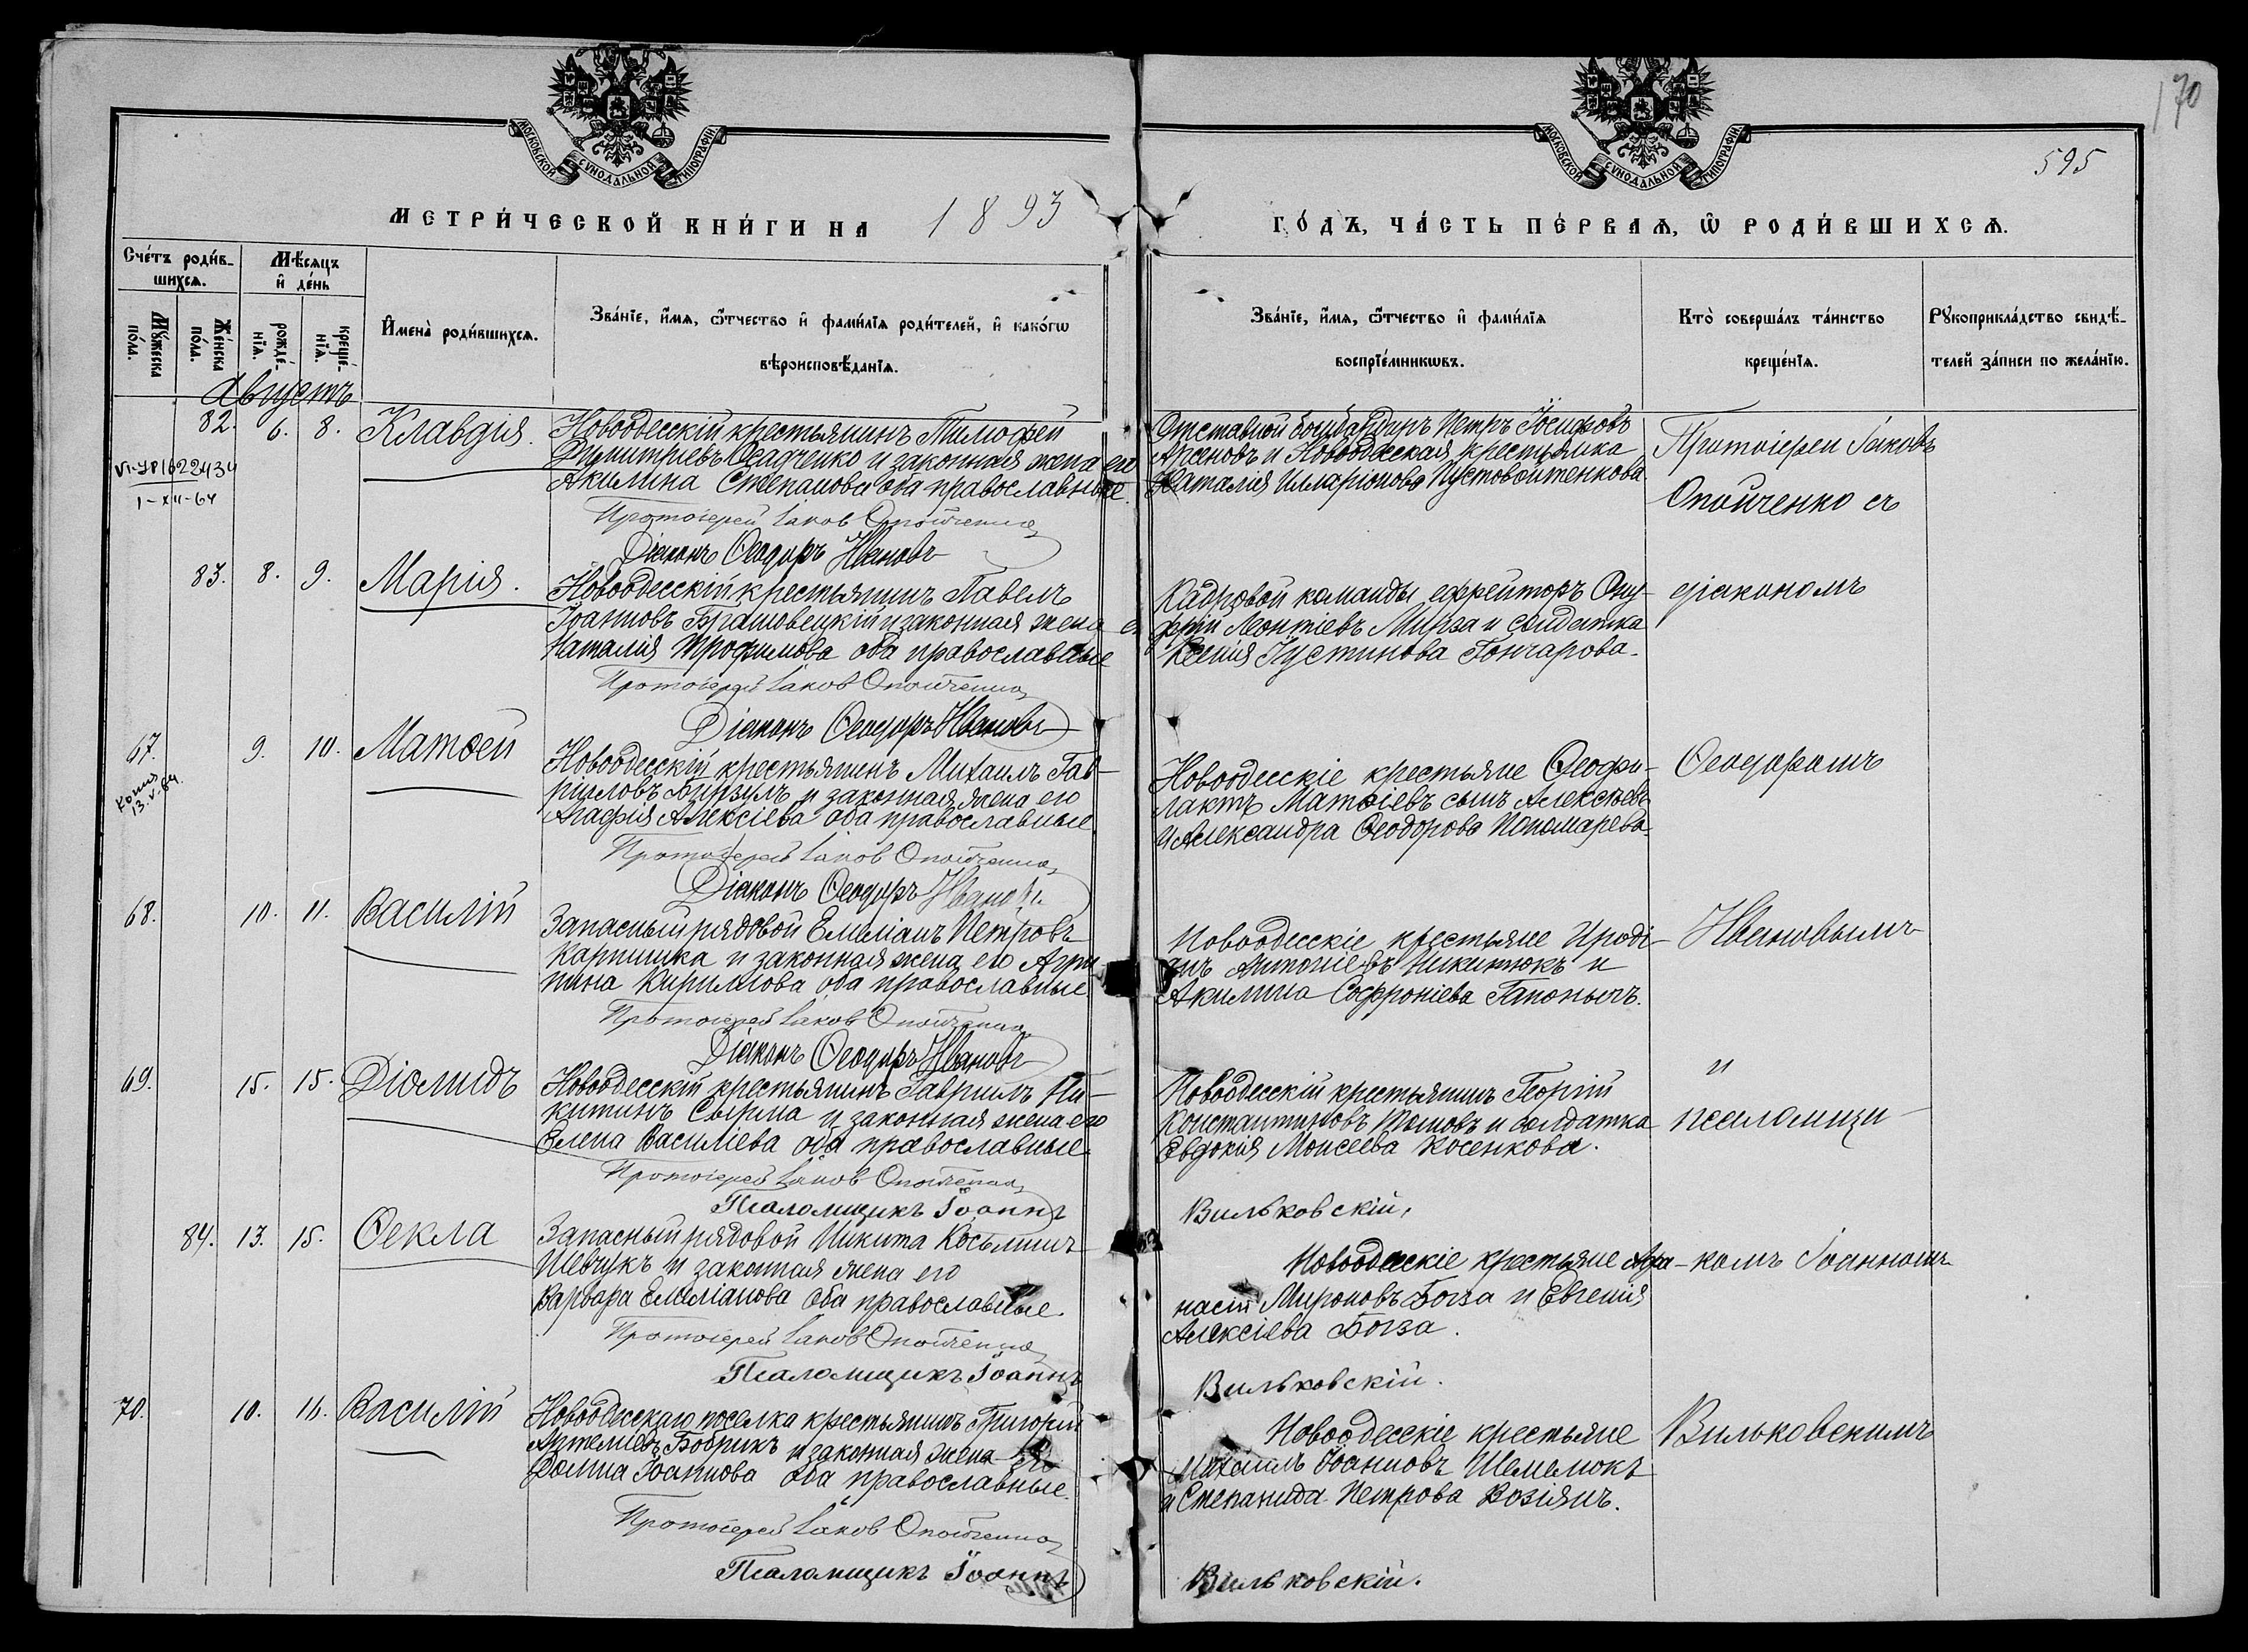 170
595
МОСКОВСКОЙ СУНОДАЛЬНОЙ ТИПОГРАФІИ
МОСКОВСКОЙ СУНОДАЛЬНОЙ ТИПОГРАФІИ
МЕТРИ́ЧЕСКОЙ КНИ́ГИ НА 1893
ГО́ДЪ, ЧА́СТЬ ПЕ́РВАѦ, Ѿ РОДИ́ВШИХСѦ.
Сче́тъ роди́в-
шихсѧ.
Мѣ́сѧцъ
и҆ де́нь
Мꙋ́жеска
по́ла.
Же́нска
по́ла.
рожде́-
нїѧ.
креще́-
нїѧ.
И҆мена̀ роди́вшихсѧ.
Зва́нїе, и҆́мѧ, ѻ҆́тчество и҆ фами́лїѧ роди́телей, и҆ како́гѡ
вѣроисповѣ́данїѧ.
Зва́нїе, и҆́мѧ, ѻ҆́тчество и҆ фами́лїѧ
воспрїе́мникѡвъ.
Кто̀ соверша́лъ та́инство
креще́нїѧ.
Рꙋкоприкла́дство свидѣ́-
телей за́писи по жела́нїю.
Августъ
82. 6. 8. Клавдія.
1-XII-64
Новоодесскій крестьянинъ Тимофей
Димитріевъ Осадченко и законная жена его
Акилина Степанова оба православные.
Протоіерей Іаков Опойченко
Діаконъ Ѳеодоръ Ивановъ
Отставной бомбандиръ Петръ Іосифовъ
Арсеновъ и Новоодесская крестьянка
Наталія Илларіонова Пустовойтенкова.
Протоіереи Іаковъ
Опойченко съ
83. 8. 9. Марія.
Новоодесскій крестьянинъ Павелъ
Іоанновъ Брашовецкій и законная жена его
Наталія Трофимова оба православные
Протоіерей Іаков Опойченко
Діаконъ Ѳеодоръ Ивановъ
Кадровой команды ефрейторъ Ону-
фрій Леонтіевъ Мирза и солдатка
Ксенія Іустинова Гончарова.
діакономъ
67. 9. 10. Матѳей
Копия
13.V.64.
Новоодесскій крестьянинъ Михаилъ Гав-
рииловъ Бирзулъ и законная жена его
Агафія Алексіева оба православные
Протоіерей Іаков Опойченко
Діаконъ Ѳеодоръ Ивановъ
Новоодесскіе крестьяне Ѳеофи-
лактъ Матѳіевъ сынъ Алексѣевъ
и Александра Ѳеодорова Пономарева.
Ѳеодоромъ
68. 10. 11. Василій
Запасный рядовой Емиліанъ Петровъ
Карпишка и законная жена его Агри-
пина Кириллова оба православные
Протоіерей Іаков Опойченко
Діаконъ Ѳеодоръ Ивановъ
Новоодесскіе крестьяне Ироді-
онъ Антоніевъ Никитюкъ и
Акилина Софроніева Гапонычъ.
Ивановымъ
69. 15. 15. Діомидъ
Новоодесскій крестьянинъ Гавриилъ Ни-
китинъ Сырма и законная жена его
Елена Василіева оба православные.
Протоіерей Іаков Опойченко
Псаломщикъ Іоаннъ
Новоодесскій крестьянинъ Георгій
Константиновъ и солдатка
Евдокія Моисеева Косенкова.
Вильковскій.
и
псаломщи-
84. 13. 15. Ѳекла
Запасный рядовой Никита Косьминъ
Шевчукъ и законная жена его
Варвара Емиліанова оба православные.
Протоіерей Іаков Опойченко
Псаломщикъ Іоаннъ
Новоодесскіе крестьяне Афа-
насій Мироновъ Богза и Евгенія
Алексіева Богза.
Вильковскій.
комъ Іоанномъ
70. 10. 16. Василій
Новоодесскаго поселка крестьянинъ Григорій
Артеміевъ Бобрикъ и законная жена его
Домна Іоаннова оба православные.
Протоіерей Іаков Опойченко
Псаломщикъ Іоаннъ
Новоодесскіе крестьяне
Михаилъ Іоанновъ Шемелюкъ
и Степанида Петрова Возіянъ.
Вильковскій.
Вильковскимъ